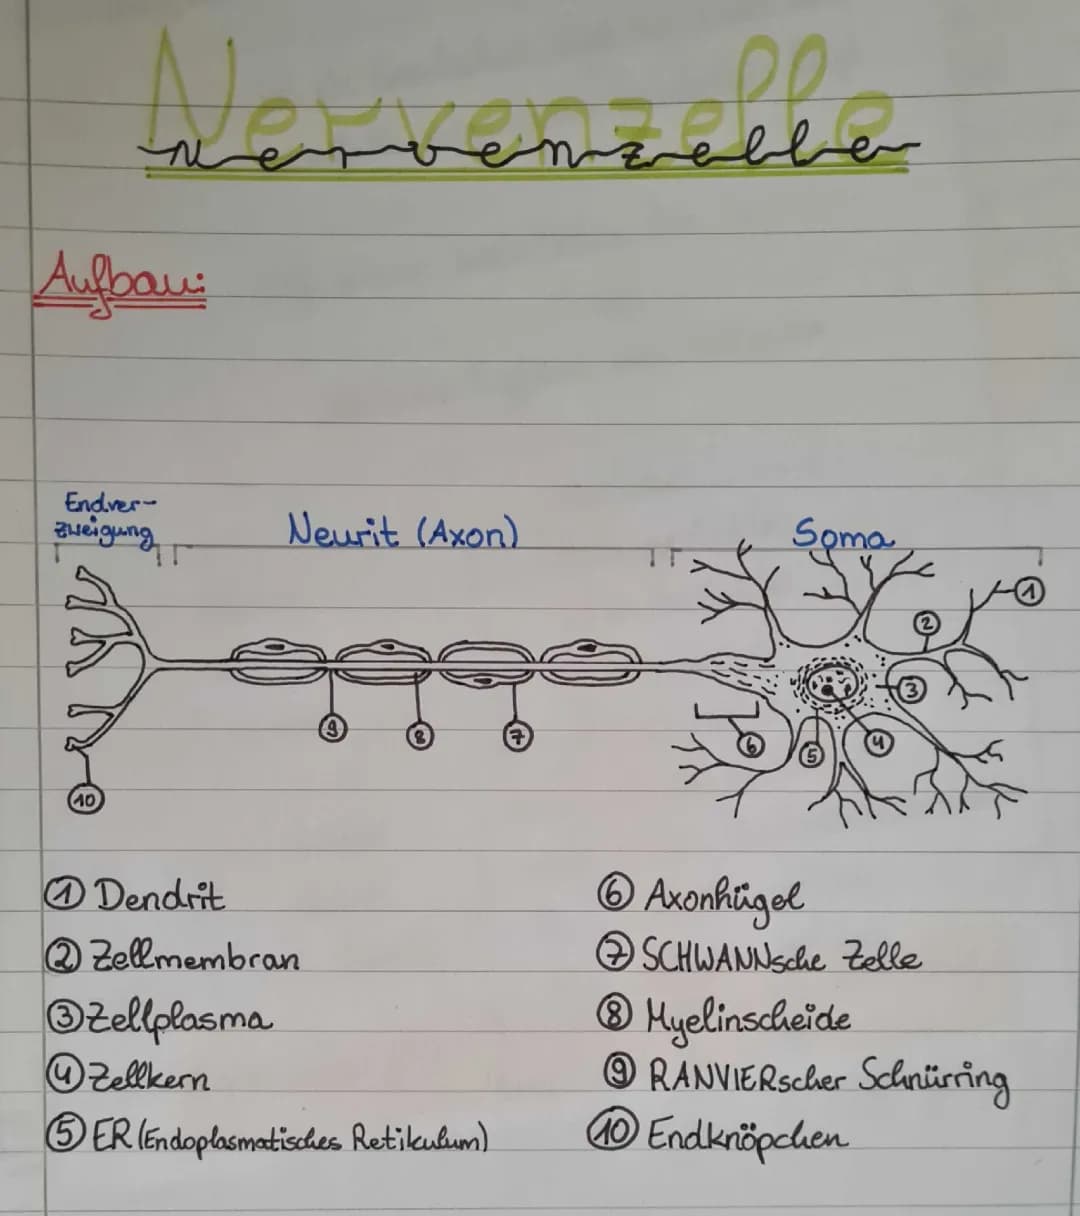 Nervenzelle
nervenzelle
Aufbau:
Endver-
zweigung
Neurit (Axon)
Soma
1
2
3
4
5
6
7
8
9
10
① Dendrit
② Zellmembran
③ Zellplasma
④ Zellkern
⑤ ER (Endoplasmatisches Retikulum)
⑥ Axonhügel
⑦ SCHWANNsche Zelle
⑧ Myelinscheide
⑨ RANVIERscher Schnürring
⑩ Endknöpchen